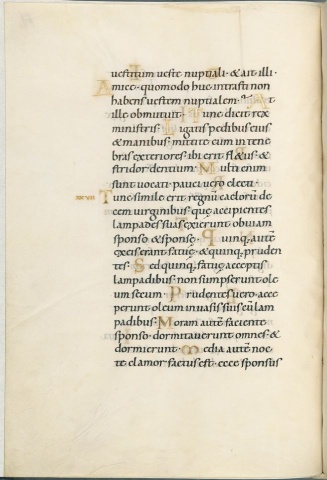 uestitum ueste nuptiali · & ait illi ·
Amice · quomodo huc intrasti non
habens uestem nuptialem · At
ille obmutuit · Tunc dicit rex
ministris · Ligatis pedibus eius
& manibus · mittite eum in tene
bras exteriores · ibi erit fl&us · &
stridor dentium · Multi enim
sunt uocati · pauci uero electi ·
Tunc simile erit regnū caelorū de
cem uirginibus · que accipientes
lampades suas exierunt obuiam
sponso & sponse · Quinq; autē
ex eis erant fatuę · & quinq; pruden
tes · Sed quinq; fatuę acceptis
lampadibus · non sumpserunt ole
um secum · Prudentes uero acce
perunt oleum in uasis suis cū lam
padibus · Moram autē faciente
sponso · dormitauerunt omnes · &
dormierunt · Media autē noc
te clamor factus est · ecce sponsus